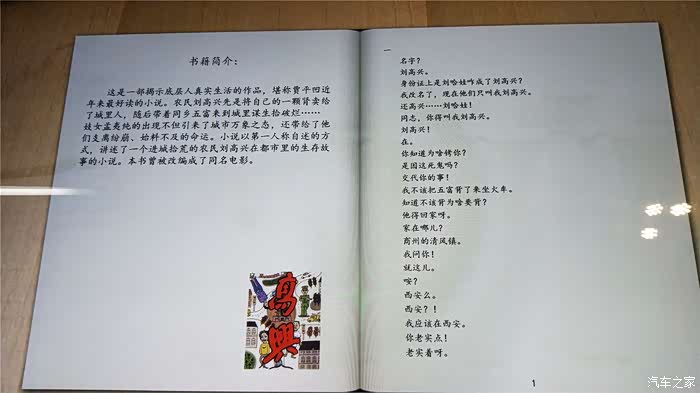 书籍简介：
这是一部揭示底层人真实生活的作品，堪称贾平凹近
年来最好读的小说。农民刘高兴先是将自己的一颗肾卖给
了城里人，随后带着同乡五富来到城里谋生拾破烂……
妓女孟夷纯的出现不但引来了城市万象之态，还带给了他
们支离给崩、始料不及的命运。小说以第一人称自述的方
式，讲述了一个进城拾荒的农民刘高兴在都市里的生存故
事的小说。本书曾被改编成了同名电影。
高
兴
一
名字？
刘高兴。
身份证上是刘哈娃咋成了刘高兴？
我改名了，现在他们只叫我刘高兴。
还高兴……刘哈娃！
同志，你得叫我刘高兴。
刘高兴！
在。
你知道为啥铐你？
是因这死鬼吗？
交代你的事！
我不该把五富背了来坐火车。
知道不该背为啥要背？
他得回家呀。
家在哪儿？
商州的清风镇。
我问你！
就这儿。
咹？
西安么。
西安？！
我应该在西安。
你老实点！
老实着呀。
1
汽车之家